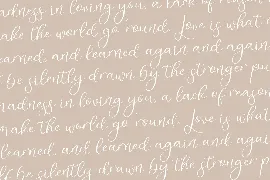 madness in loving you, a lack of reason
make the world go round. Love is what
learned, and learned again and again
be silently drawn by the stronger
madness in loving you, a lack of reason
make the world go round. Love is what
learned, and learned again and again
be silently drawn by the stronger